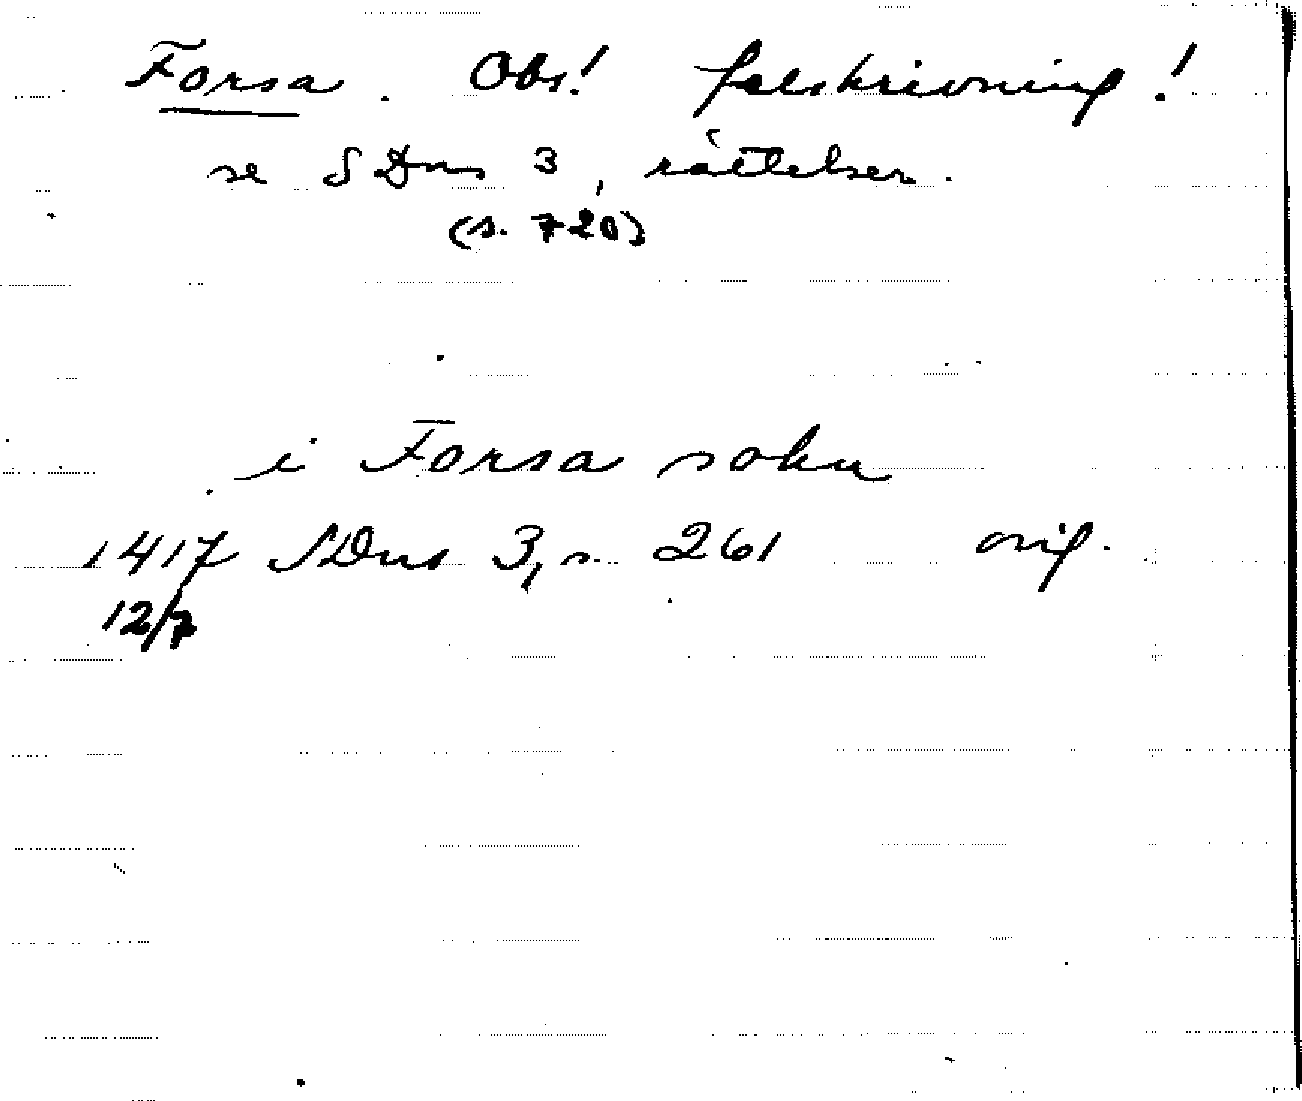 Forsa. Obs! felskrivning!
se SDns 3, rättelser.
(s. 720)
i Forsa sokn
1417 SDns 3, s. 261 orig.
12/7